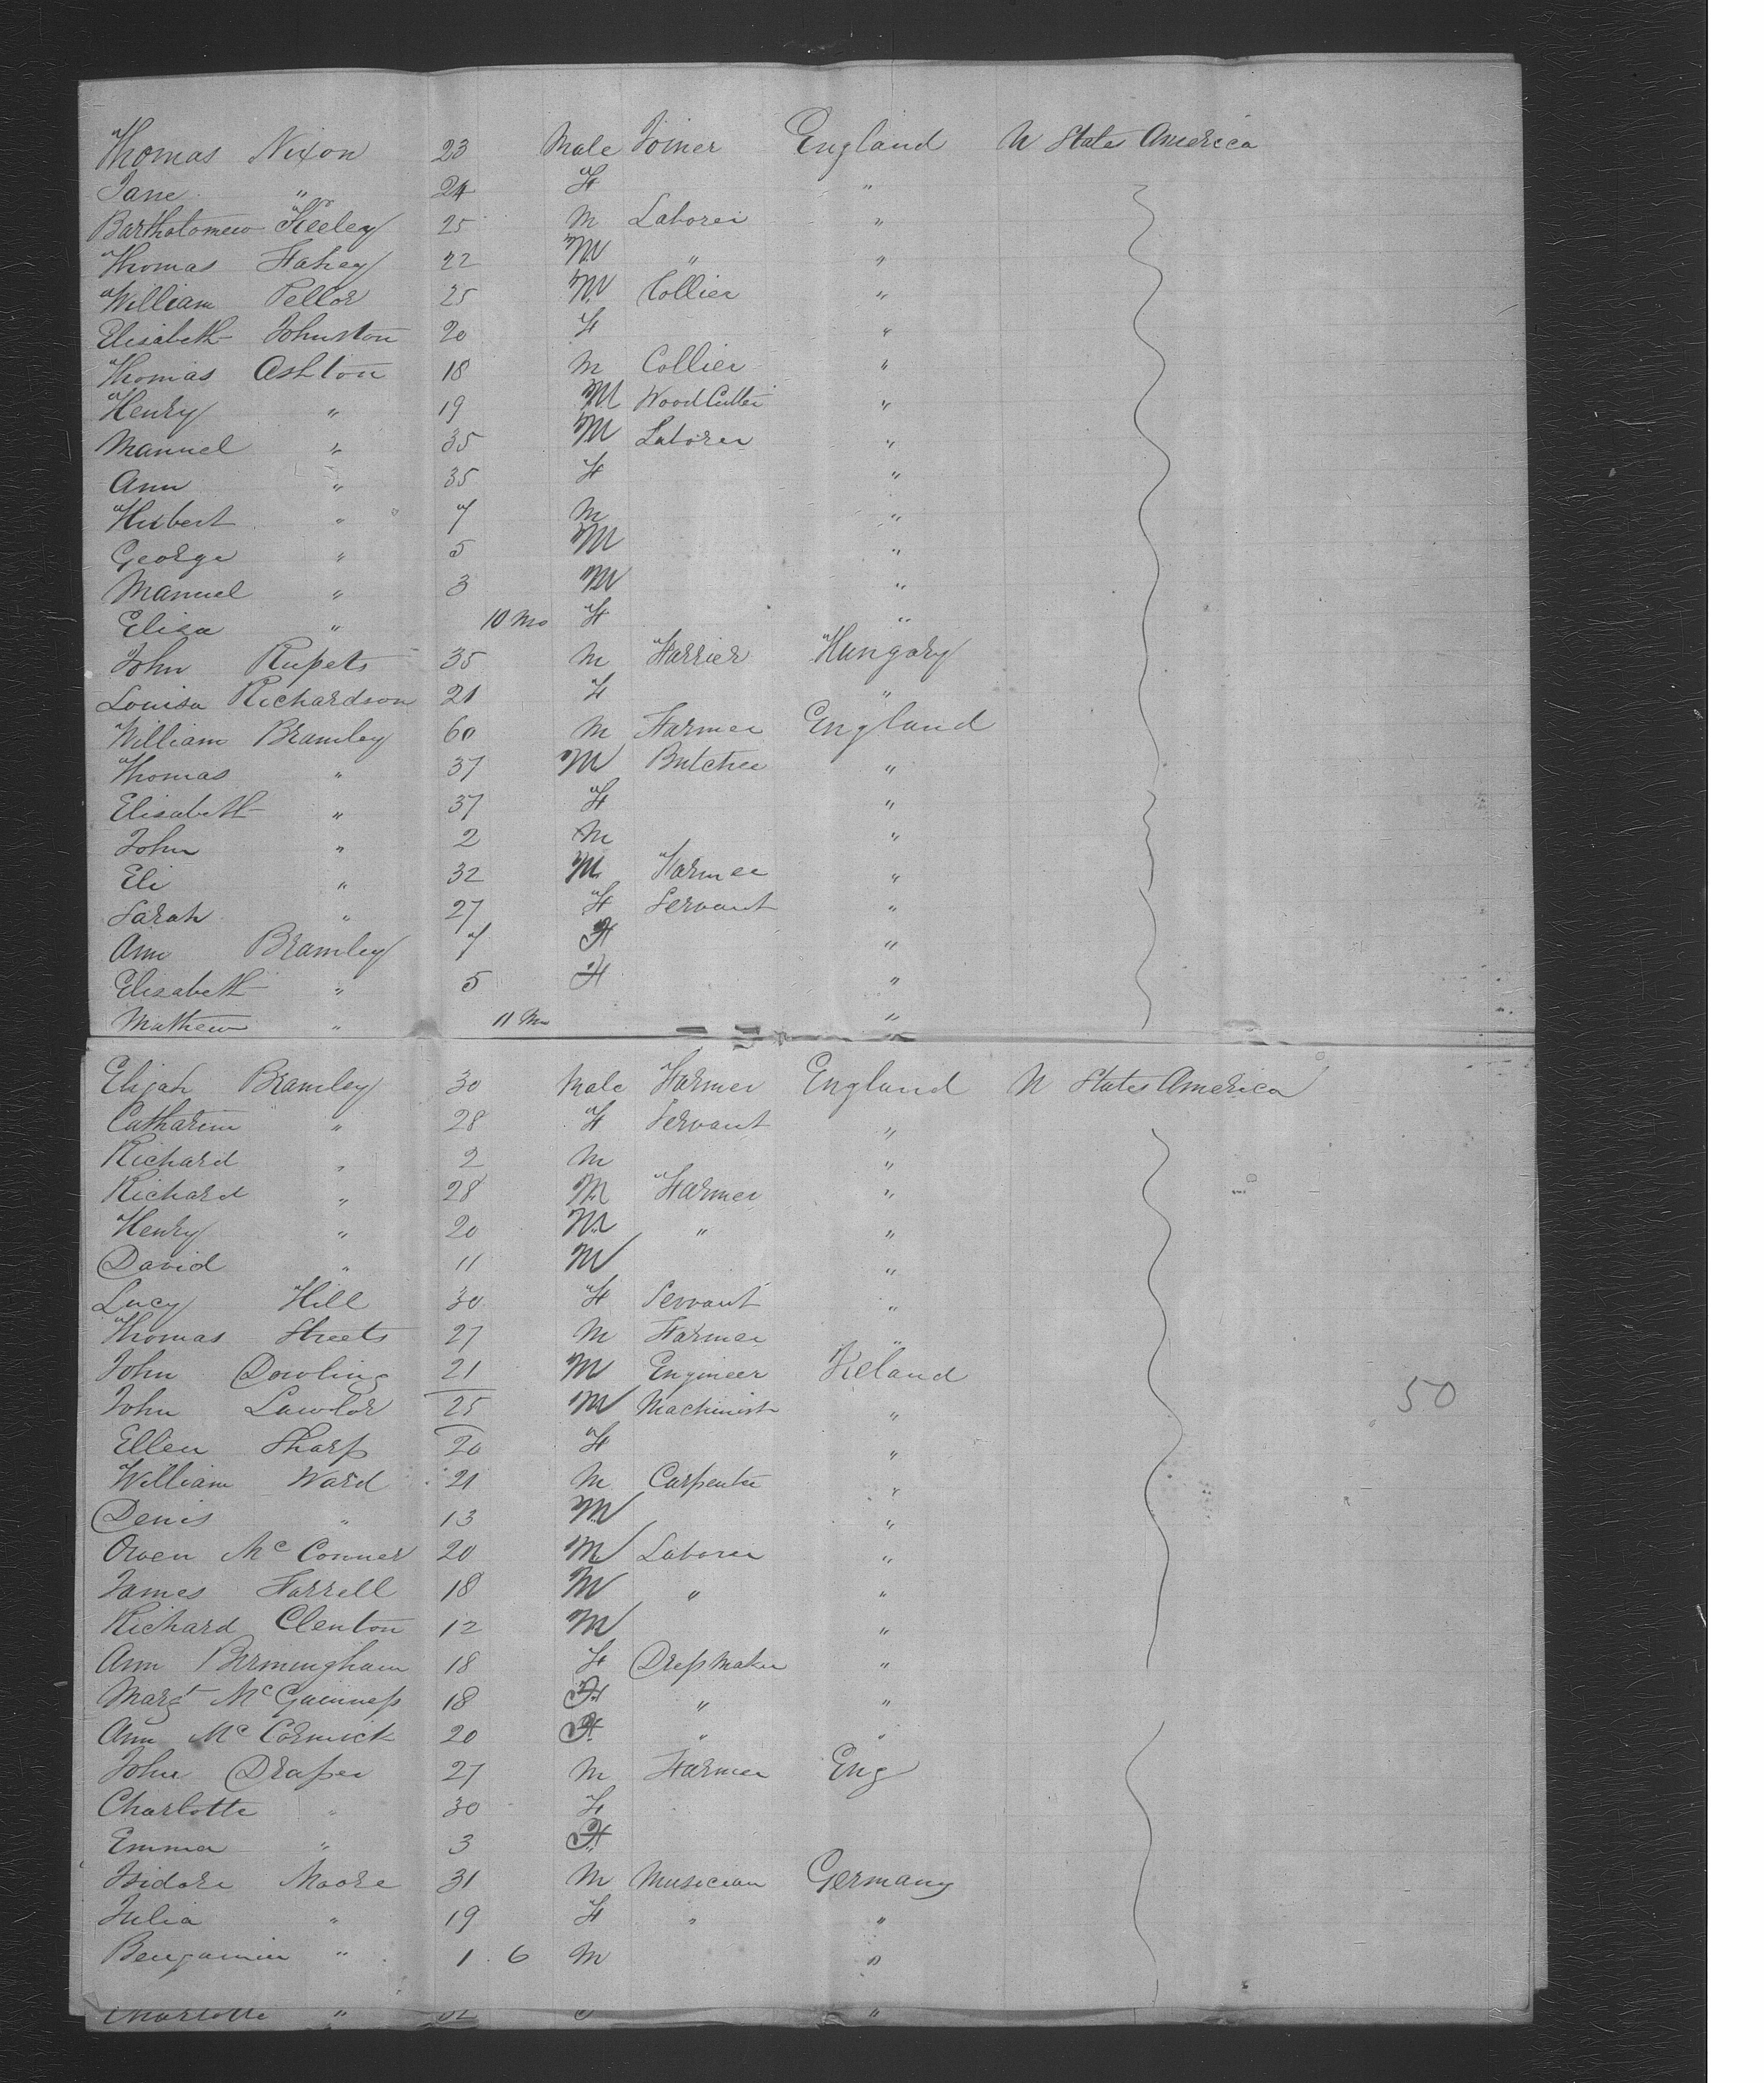 Thomas Nixon 23 Male Joiner England U States America
Jane " 24 F "
Bartholomew Keeley 25 M Laborer "
Thomas Fahey 22 M " "
William Pellor 25 M Collier "
Elisabeth Johnston 20 F "
Thomas Ashton 18 M Collier "
Henry " 19 M Wood Cutter "
Manuel " 35 M Laborer "
Ann " 35 F "
Herbert " 7 M "
George " 5 M "
Manuel " 3 M "
Eliza " 10 Mo F "
John Rupets 35 M Farrier Hungary
Louisa Richardson 21 F "
William Bramley 60 M Farmer England
Thomas " 37 M Butcher "
Elisabeth " 37 F "
John " 2 M "
Eli " 32 M Farmer "
Sarah " 27 F Servant "
Ann Bramley 7 F "
Elizabeth " 5 F "
Mathew " 11 Mo "
Elijah Bramley 30 Male Farmer England U States America
Catharine " 28 F Servant "
Richard " 2 M "
Richard " 28 M Farmer "
Henry " 20 M " "
David " 11 M "
Lucy Hill 30 F Servant "
Thomas Streets 27 M Farmer "
John Dowling 21 M Engineer Ireland
John Lawlor 25 M Machinist " 50
Ellen Sharp 20 F "
William Ward 21 M Carpenter "
Denis " 13 M "
Owen McConner 20 M Laborer "
James Farrell 18 M " "
Richard Clenton 12 M "
Ann Bermingham 18 F Dress Maker "
Margt McGuinness 18 F " "
Ann McCormick 20 F " "
John Draper 27 M Farmer Eng
Charlotte " 30 F
Emma " 3 F
Isidore Moore 31 M Musician Germany
Julia " 19 F " "
Benjamin " 1 . 6 M "
Charlotte " "